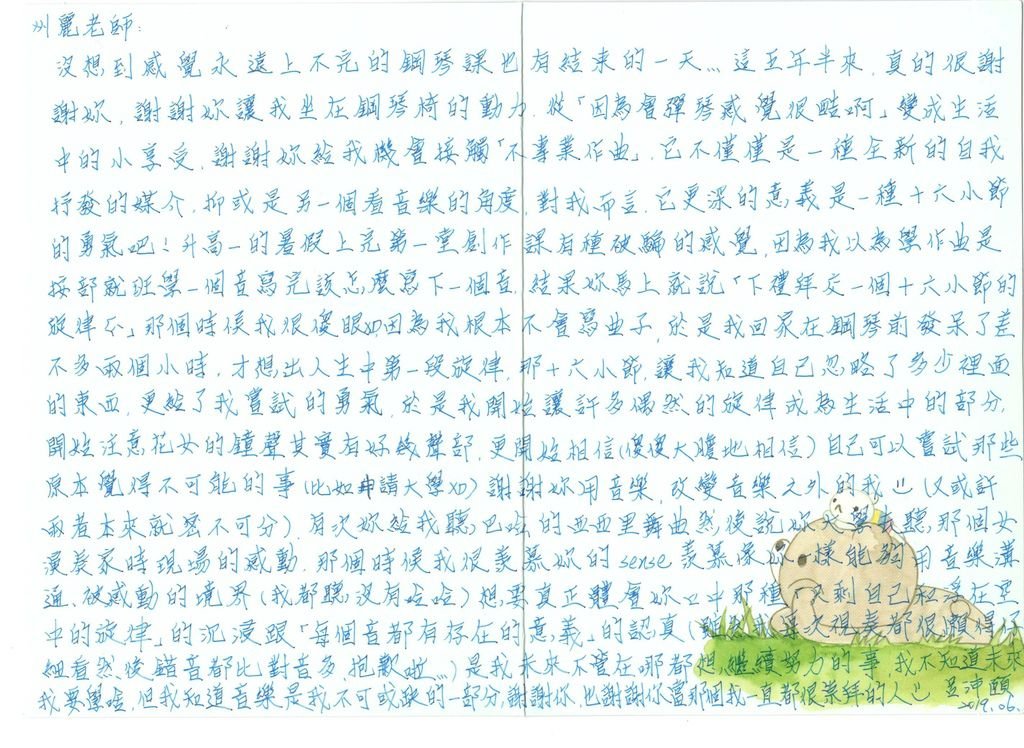 州麗老師:
沒想到感覺永遠上不完的鋼琴課也有結束的一天… 這五年半來,真的很謝
謝妳,謝謝妳讓我坐在鋼琴椅的動力,從「因為會彈琴感覺很酷啊」變成生活
中的小享受,謝謝妳給我機會接觸「不專業作曲」,它不僅僅是一種全新的自我
抒發的媒介,抑或是另一個看音樂的角度,對我而言,它更深的意義是一種十六小節
的勇氣吧!升高一的暑假上完第一堂創作課有種被騙的感覺,因為我以為學作曲是
按部就班學一個音寫完該怎麼寫下一個音,結果妳馬上就說「下禮拜交一個十六小節的
旋律ㄅ」那個時候我很傻眼XD因為我根本不會寫曲子,於是我回家在鋼琴前發呆了差
不多兩個小時,才想出人生中第一段旋律,那十六小節,讓我知道自己忽略了多少裡面
的東西,更給了我嘗試的勇氣,於是我開始讓許多偶然的旋律成為生活中的部分,
開始注意花女的鐘聲其實有好幾聲部,更開始相信(傻傻大膽地相信)自己可以嘗試那些
原本覺得不可能的事(比如申請大學XD)謝謝妳用音樂,改變音樂之外的我 (又或許
兩者本來就密不可分)有次妳給我聽巴哈的西西里舞曲然後說妳去聽那個女
演奏家時現場的感動,那個時候我很羨慕妳的sense羨慕像妳一樣能夠用音樂溝
通、被感動的境界(我都聽沒有哈哈)想要真正體會妳口中那種「只剩自己和存在空
中的旋律」的沉浸跟「每個音都有存在的意義」的認真(雖然我每次視奏都很懶得仔
細看然後錯音都比對音多,抱歉啦…)是我未來不管在哪都想繼續努力的事,我不知道未來
我要學啥,但我知道音樂是我不可或缺的一部分,謝謝你,也謝謝你當那個我一直都很崇拜的人
2019.06.